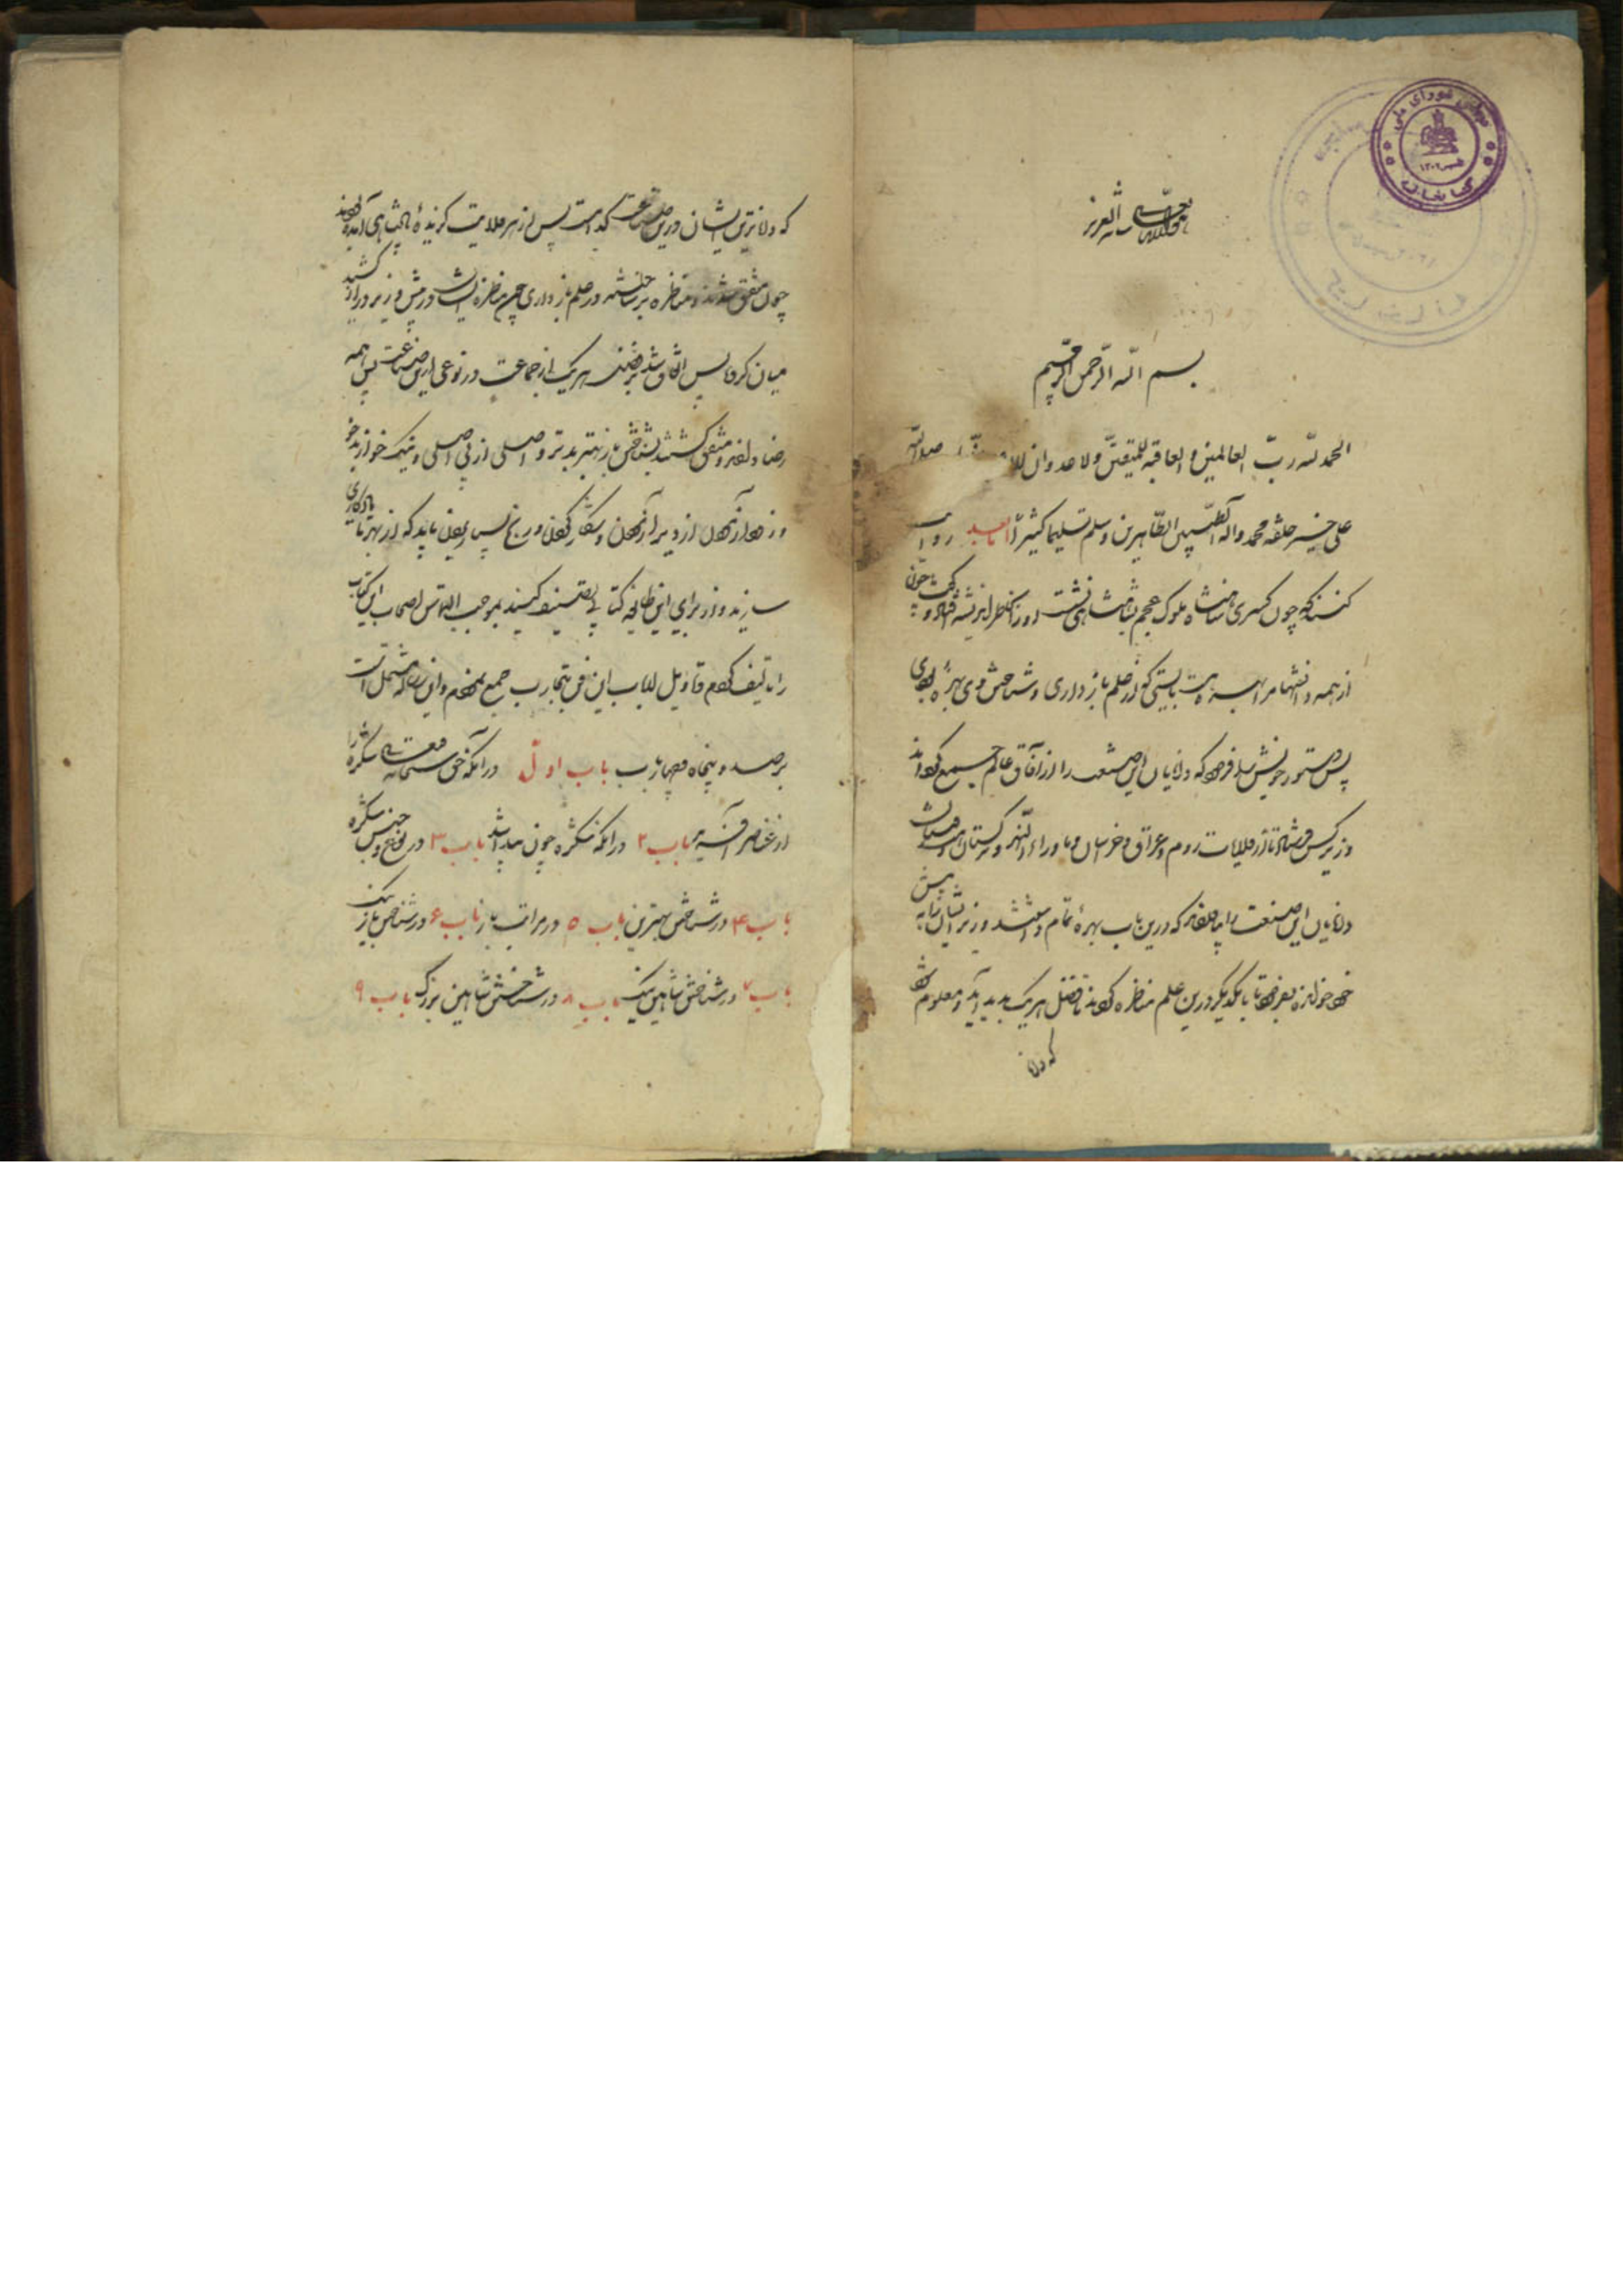 کتابخانه مجلس شورای ملی
۱۳۰۲
بسم الله الرحمن الرحیم
الحمد لله رب العالمین و العاقبة للمتقین ولا عدوان صلوات الله
علی خیر خلقه محمد واله الطیبین الطاهرین وسلم تسلیما کثیرا اما بعد روایت
کنند که چون کسری شاهنشاه ملوک عجم بشاهنشاهی نشست روزی گفت چون
از همه دانشها مرا بهره هست بایستی که از علم بازداری و شناختن وی بهرهٔ بودی
پس دستور خویش را فرمود که دانایان این صنعت را از آفاق عالم جمع کردند
وزیر کس فرستاد تا از ولایات روم و عراق و خراسان و ماوراء النهر و ترکستان و هندوستان
دانایان این صنعت را که درین باب بهرهٔ تمام داشتند وزیر ایشان را به پیش
خود خواند و بفرمود تا با یکدیگر درین علم مناظره کردند تا فضل هر یک پدید آید و معلوم شود
که دانا
که داناترین ایشان درین صناعت کدامست پس از هر ولایت گزیدهٔ
چون متفق شدند و مناظره برساختند در علم بازداری مناظره ایشان در پیش وزیر دراز کشید
میان گروه پس اتفاق شد بر فضل هر یک از جماعت در نوعی ازین صناعت پس همه
رضا دادند و متفق گشتند بشناختن باز بهتر و بدتر و اصلی از بی اصلی و نیک خو از بد خو
و زود آزمون از دیر آزمون و شکار کردن و رنج پس باید که از بهر ما یادگاری
سازند و از برای این طایفه کتابی تصنیف کنند بموجب التماس اصحاب این کتاب
را تالیف کردم و اقاویل ارباب این فن تجارب جمع نمودم و این رساله مشتمل است
بر صد و پنجاه و چهار باب باب اول در آنکه حق سبحانه و تعالی شکره را
از عناصر آفرید باب ۲ در آنکه شکره چون پیدا شد باب ۳ در انواع و جنس شکره
باب ۴ در شناختن بهترین باب ۵ در مراتب باز باب ۶ در شناختن باز نیک
باب ۷ در شناختن شاهین نیک باب ۸ در شناختن شاهین بزرگ باب ۹